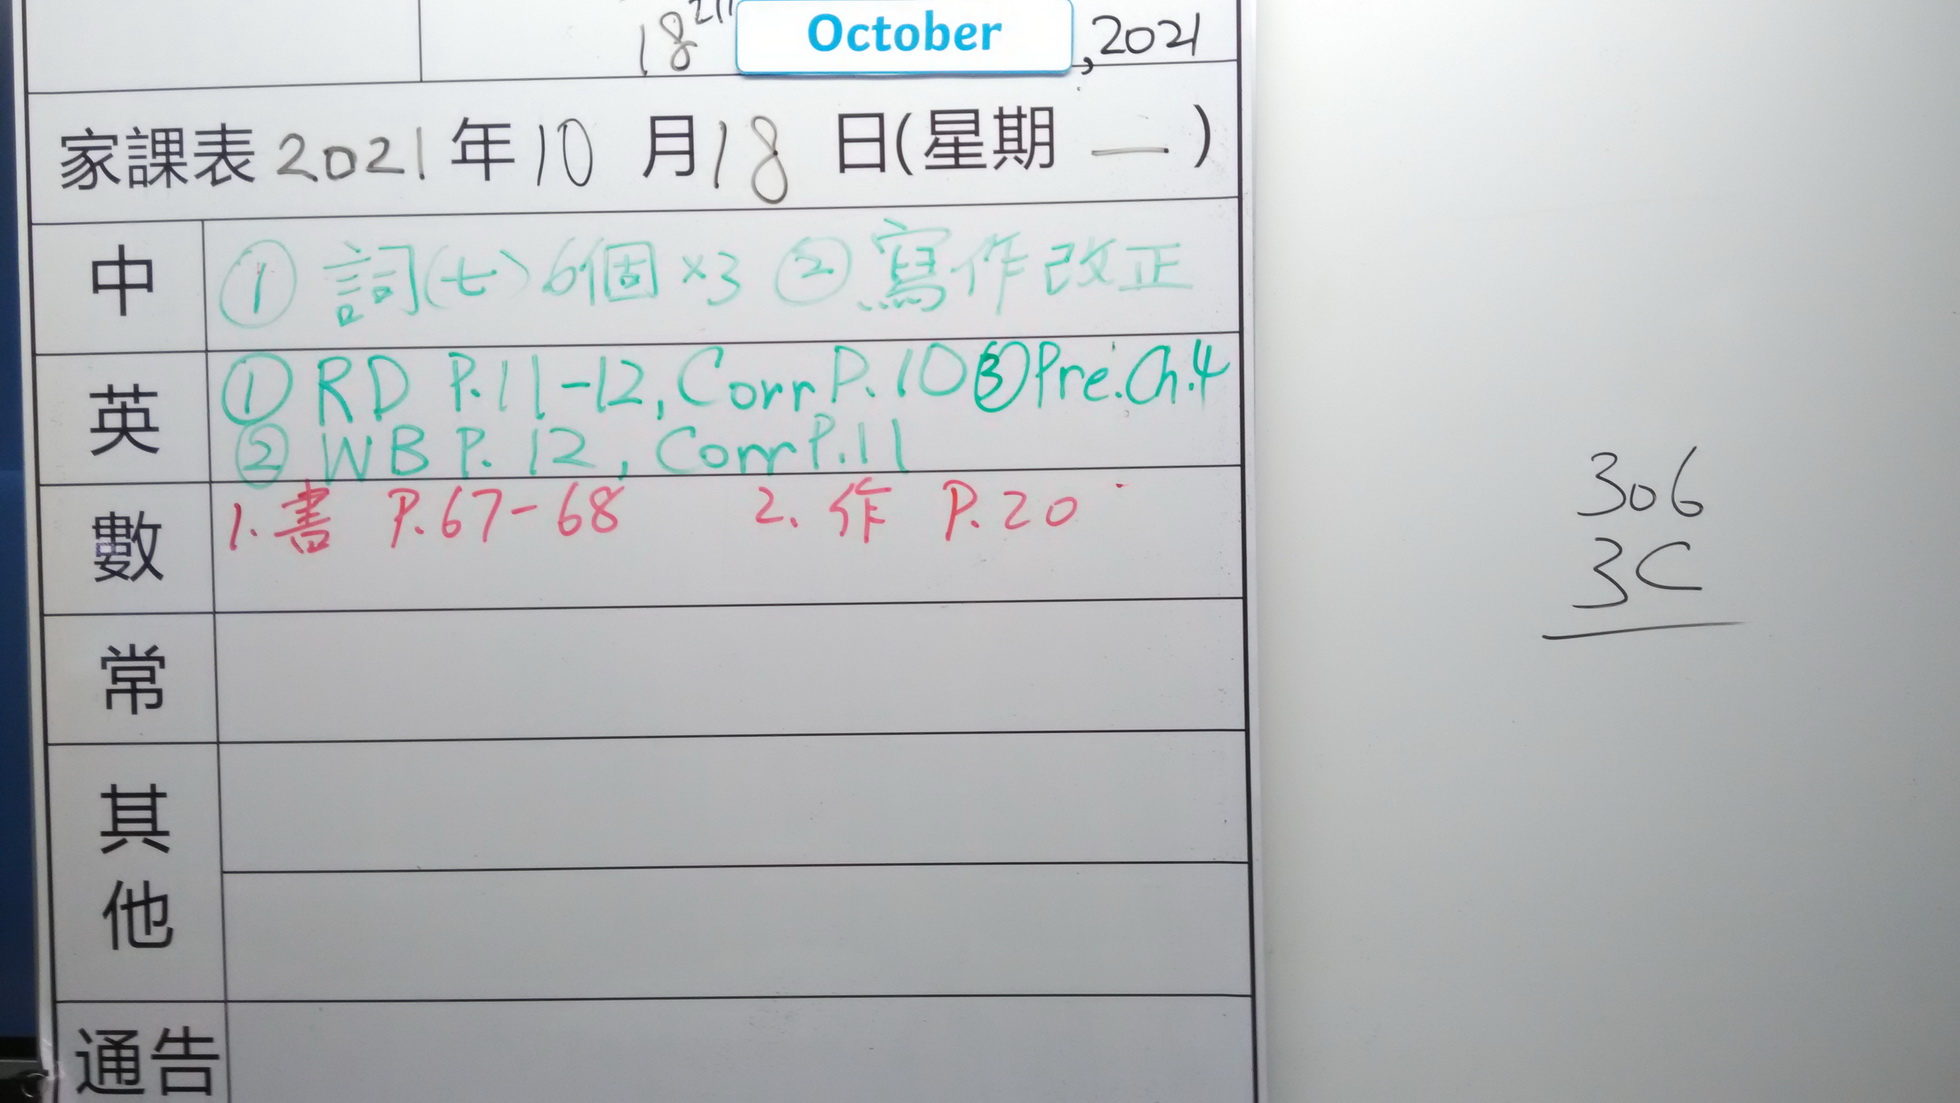 18 October, 2021
家課表 2021 年 10 月 18 日(星期 一 )
中 ① 詞(七) 6個 ×3 ② 寫作改正
英 ① RD P.11-12, Corr P.10 ③ Pre. Ch.4
② WB P. 12, Corr P.11
數 1. 書 P.67-68 2. 作 P.20
常
其他
通告
306
3C